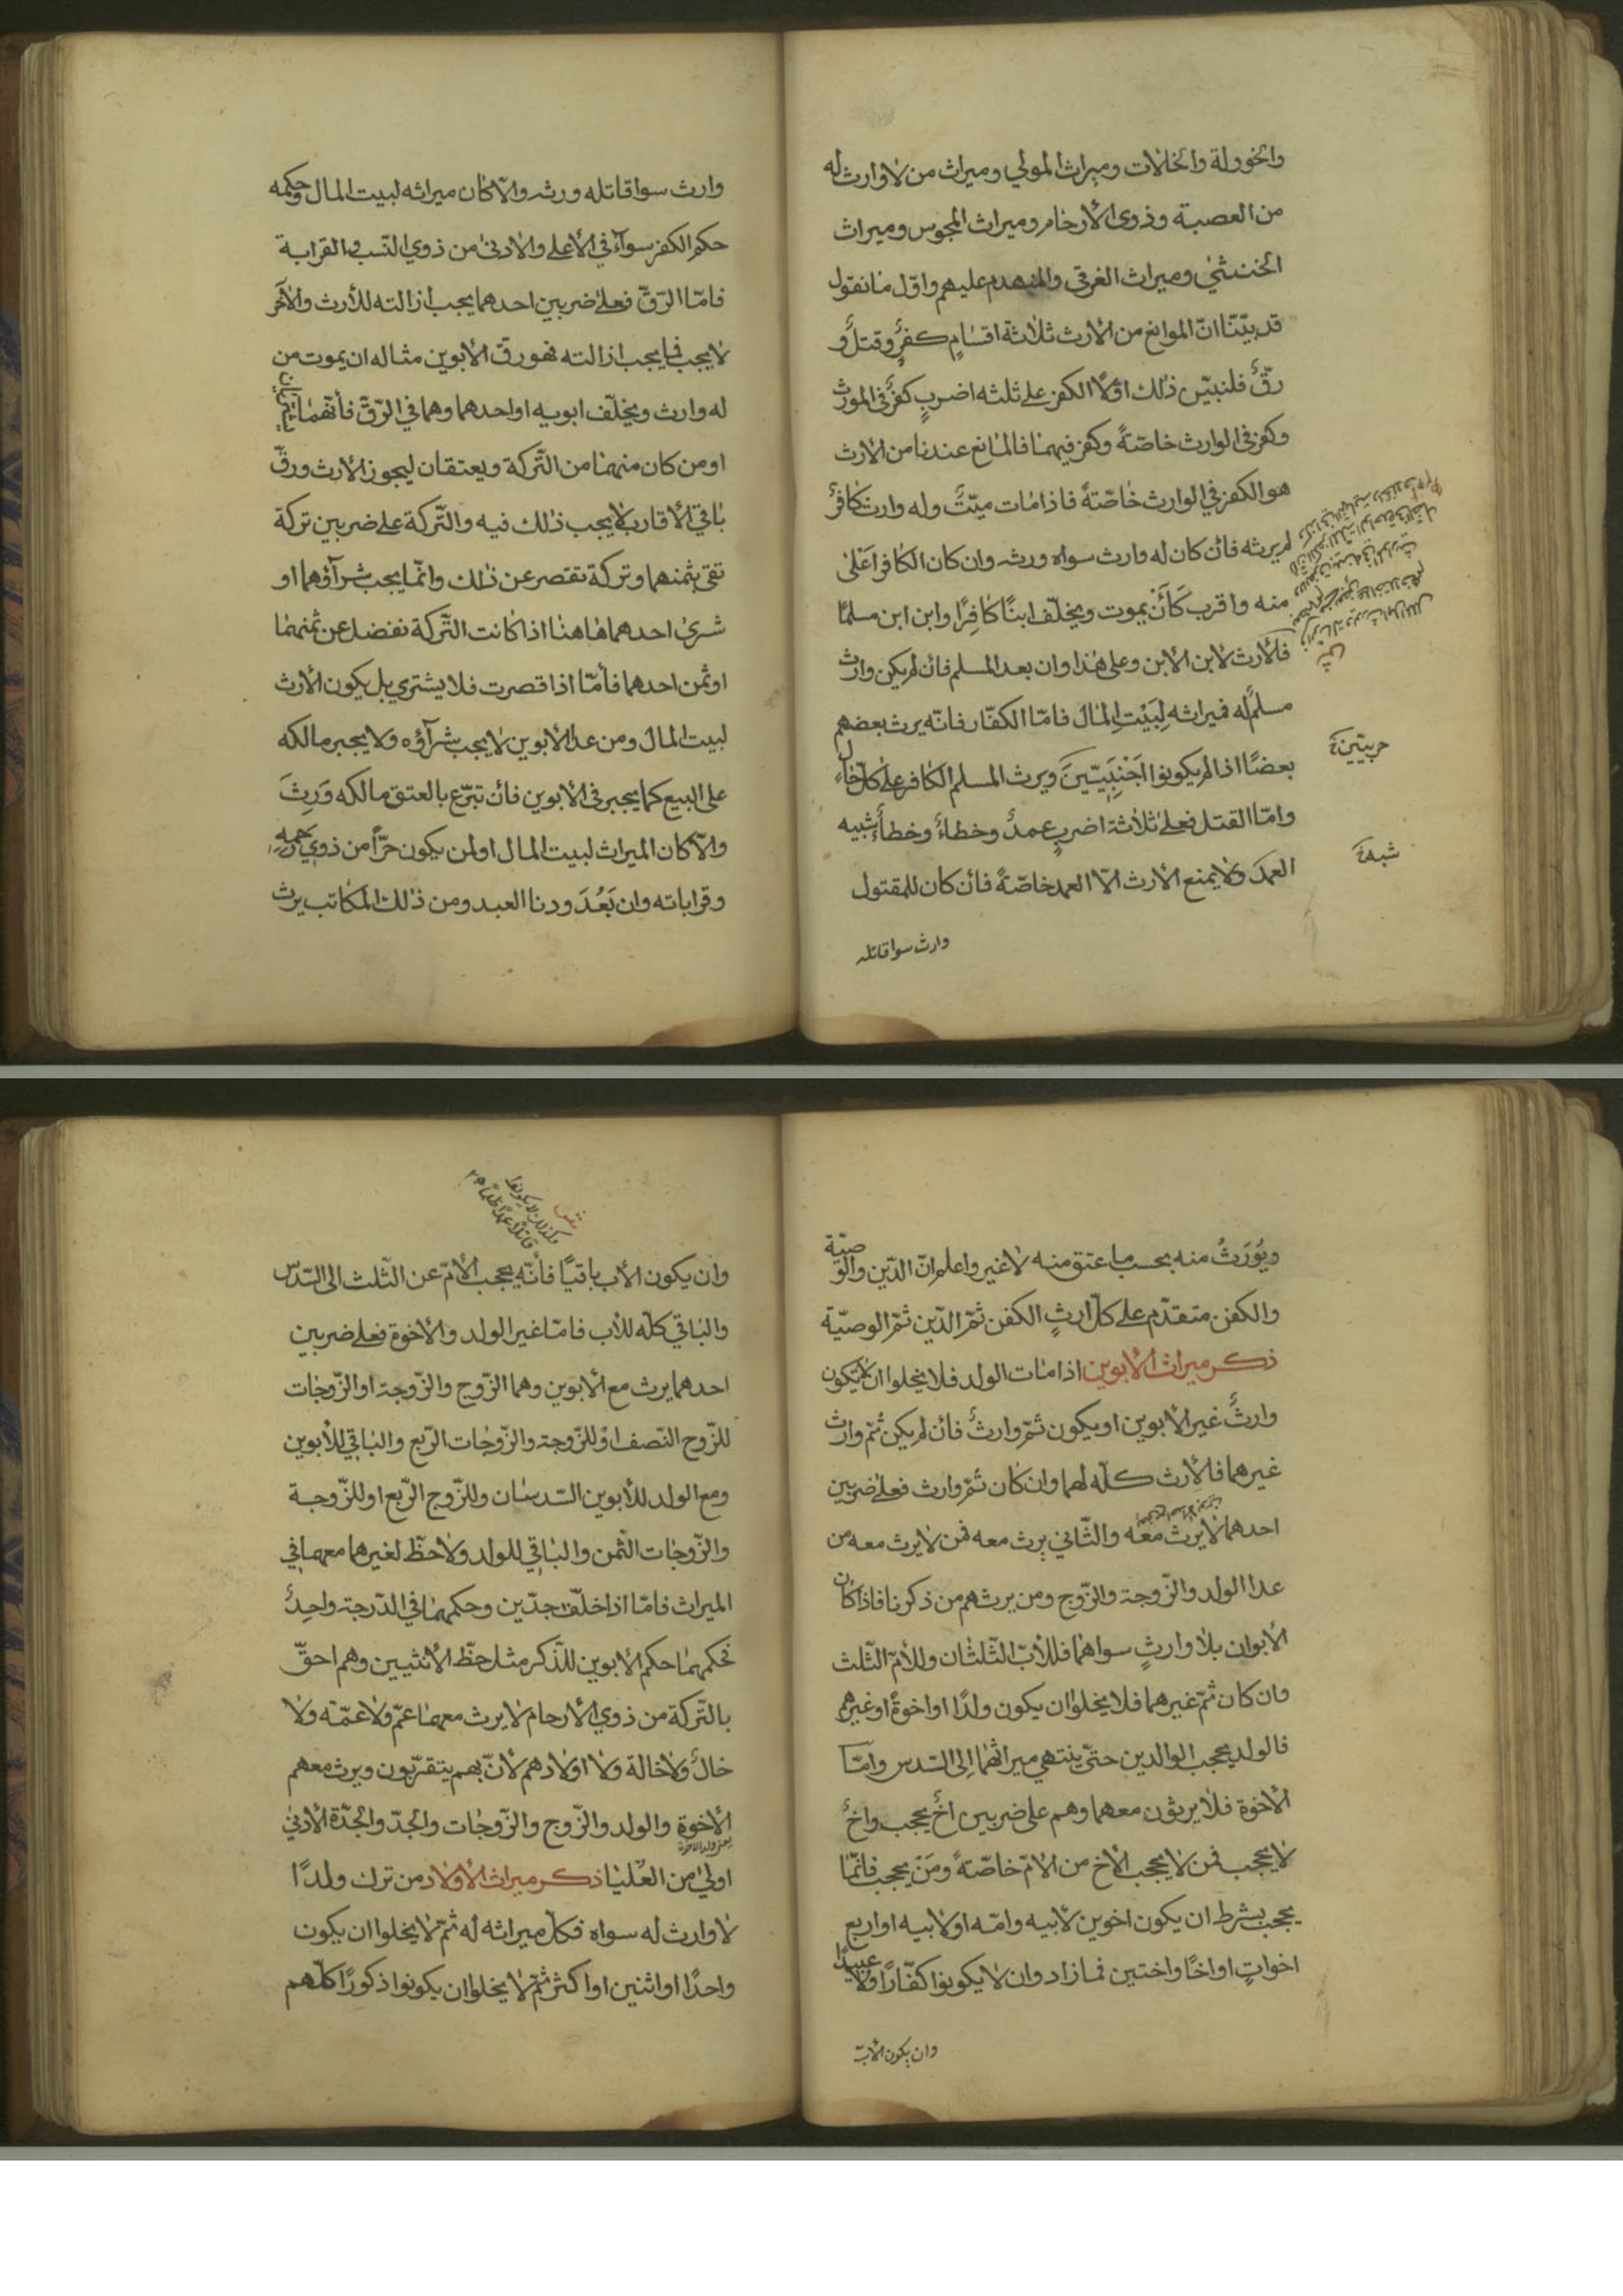 والخوولة والخالات وميراث المولي وميراث من لا وارث له
من العصبة وذوي الأرحام وميراث المجوس وميراث
الخنثي وميراث الغرقي والمنهدم عليهم واوّل ما نقول
قد بيّنّا انّ الموانع من الأرث ثلاثة اقسامٍ كفرٌ وقتلٌ و
رقٌّ فلنبيّن ذلك اوّلًا الكفر علي ثلثه اضربٍ كفرٌ في المورث
وكفر في الوارث خاصّةً وكفر فيهما فالمانع عندنا من الأرث
هو الكفر في الوارث خاصّةً فاذا مات ميّتٌ وله وارث كافرٌ
لم يرثه فأن كان له وارث سواه ورثه وان كان الكافر اعلي
منه واقرب كأن يموت ويخلّف ابنًا كافرًا وابن ابن مسلمًا
فالأرث لابن الابن وعلي هذا وان بعد المسلم فأن لم يكن وارث
مسلمٌ له فميراثه لِبَيْتِ المال فامّا الكفّار فانّه يرث بعضهم
بعضًا اذا لم يكونوا اَجْنَبِيّينَ ويرث المسلم الكافر علي كلّ حالٍ
حربيّين
وامّا القتل فعلي ثلاثة اضربٍ عمدٌ وخطاءٌ وخطأٌ شبيه
شبه
العمدَ ولا يمنع الأرث الّا العمد خاصّةً فأن كان للمقتول
وارث سوا قاتله
وارث سوا قاتله ورثه والّا كان ميراثه لبيت المال وحكمه
حكم الكفر سوآءٌ في الأعلي والادني من ذوي النّسب والقرابة
فامّا الرّقّ فعلي ضربين احدهما يجب ازالته للأرث والآخر
لا يجب فما يجب ازالته فهو رقّ الأبوين مثاله ان يموت من
له وارث ويخلّف ابويه او احدهما وهما في الرّقّ فأنّهما يشتريان
او من كان منهما من التّركة ويعتقان ليجوز الأرث ورقّ
باقي الأقارب لا يجب ذلك فيه والتّركة علي ضربين تركة
تفي بثمنهما وتركة تقصر عن ذلك وانّما يجب شرآؤهما او
شري احدهما هاهنا اذا كانت التّركة تفضل عن ثمنهما
او ثمن احدهما فأمّا اذا قصرت فلا يشتري بل يكون الأرث
لبيت المال ومن عدا الأبوين لا يجب شرآؤه ولا يجبر مالكه
علي البيع كما يجبر في الأبوين فأن تبرّع بالعتق مالكه وَرِثَ
والّا كان الميراث لبيت المال او لمن يكون حرّاً من ذوي رحمه
وقراباته وان بَعُدَ ودنا العبد ومن ذلك المكاتب يرث
ويُوَرَثُ منه بحسب ما عتق منه لا غير واعلم انّ الدّين والوصيّة
والكفن متقدّم علي كلّ ارثٍ الكفن ثمّ الدّين ثمّ الوصيّة
ذكر ميراث الأبوين اذا مات الولد فلا يخلوا ان لا يكون
وارثٌ غير الأبوين او يكون ثمّ وارثٌ فأن لم يكن ثمّ وارث
غيرهما فالأرث كلّه لهما وان كان ثمّ وارث فعلي ضربين
احدهما لا يرث معه والثّاني يرث معه فمن لا يرث معه من
عدا الولد والزّوجة والزّوج ومن يرث هم من ذكرنا فاذا كان
الأبوان بلا وارثٍ سواهما فللأب الثّلثان وللأمّ الثّلث
وان كان ثمّ غيرهما فلا يخلوا ان يكون ولدًا او اخوةً او غيرهم
فالولد يحجب الوالدين حتّي ينتهي ميراثهما إلي السّدس وامّا
الأخوة فلا يرثون معهما وهم علي ضربين اخٌ يحجب واخٌ
لا يحجب فمن لا يحجب الأخ من الأمّ خاصّةً ومَنْ يحجب فانّما
يحجب بشرط ان يكون اخوين لابيه وامّه او لأبيه او اربع
اخواتٍ او اخًا واختين فما زاد وان لا يكونوا كفّارًا ولا عبيدًا
وان يكون الأب
وان يكون الأب باقيًا فأنّه يحجب الأمّ عن الثّلث الي السّدس
والباقي كلّه للأب فامّا غير الولد والأخوة فعلي ضربين
احدهما يرث مع الأبوين وهما الزّوج والزّوجة او الزّوجات
للزّوج النّصف اوْ للزّوجة والزّوجات الرّبع والباقي للأبوين
ومع الولد للأبوين السّدسان وللزّوج الرّبع او للزّوجة
والزّوجات الثّمن والباقي للولد ولا حظّ لغيرهما معهما في
الميراث فامّا اذا خلّف جدّين وحكمهما في الدّرجة واحدٌ
فحكمهما حكم الأبوين للذّكر مثل حظّ الأنثيين وهم احقّ
بالتّركة من ذوي الأرحام لا يرث معهما عمّ ولا عمّة ولا
خالٌ ولا خالة ولا اولادهم لأنّ بهم يتقرّبون ويرث معهم
الأخوة والولد والزّوج والزّوجات والجدّ والجدّة الأدني
اولي من العُليا ذكر ميراث الأولاد من ترك ولدًا
لا وارث له سواه فكلّ ميراثه له ثمّ لا يخلوا ان يكون
واحدًا او اثنين او اكثر ثمّ لا يخلوا ان يكونوا ذكورًا كلّهم